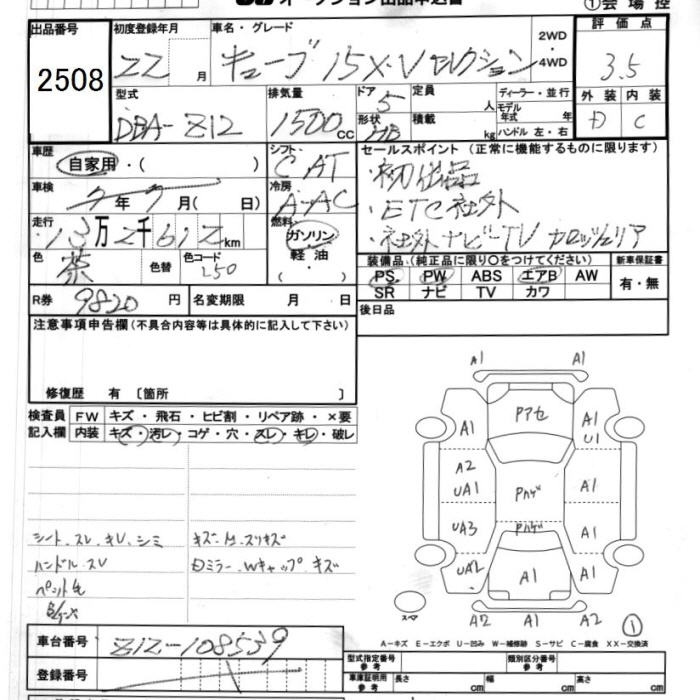 オークション出品申込書 ①会場控
出品番号 初度登録年月 車名・グレード 2WD・4WD 評価点
2508 22 月 キューブ 15X・Vセレクション 3.5
型式 排気量 ドア 5 定員 人 ディーラー・並行 外装 内装
DBA-Z12 1500 cc 形状 HB 積載 kg モデル年式 年 ハンドル 左・右 D C
車歴 シフト セールスポイント (正常に機能するものに限ります)
自家用・( ) C AT ・初出品
車検 年 月( 日) 冷房 A-AC ・ETC社外
走行 燃料 ・社外ナビ-TV カロッツェリア
13万2千612km ガソリン
色 紫 色替 色コード L50 軽油 ・( )
装備品(純正品に限り○をつけてください) 新車保証書
PS PW ABS エアB AW 有・無
SR ナビ TV カワ
R券 9820 円 名変期限 月 日 後日品
注意事項申告欄(不具合内容等は具体的に記入して下さい)
修復歴 有 〔箇所 〕
検査員 FW キズ・飛石・ヒビ割・リペア跡・×要
記入欄 内装 キズ・汚レ・コゲ・穴・スレ・キレ・破レ
シート、スレ、キレ、シミ
ハンドル、スレ
ペット毛
キズ、
Dミラー、Wキャップ、キズ
A1 A1
Pアセ
A1 A1
U1
A2
UA1 Pハゲ A1
UA3 Pハゲ A1
UA2 A1 A1
スペア A2 A1 A2 ①
A-キズ E-エクボ U-凹み W-補修跡 S-サビ C-腐食 XX-交換済
車台番号 Z12-108539
登録番号
型式指定番号 参考 類別区分番号 参考
車庫証明用 参考 長さ cm 幅 cm 高さ cm